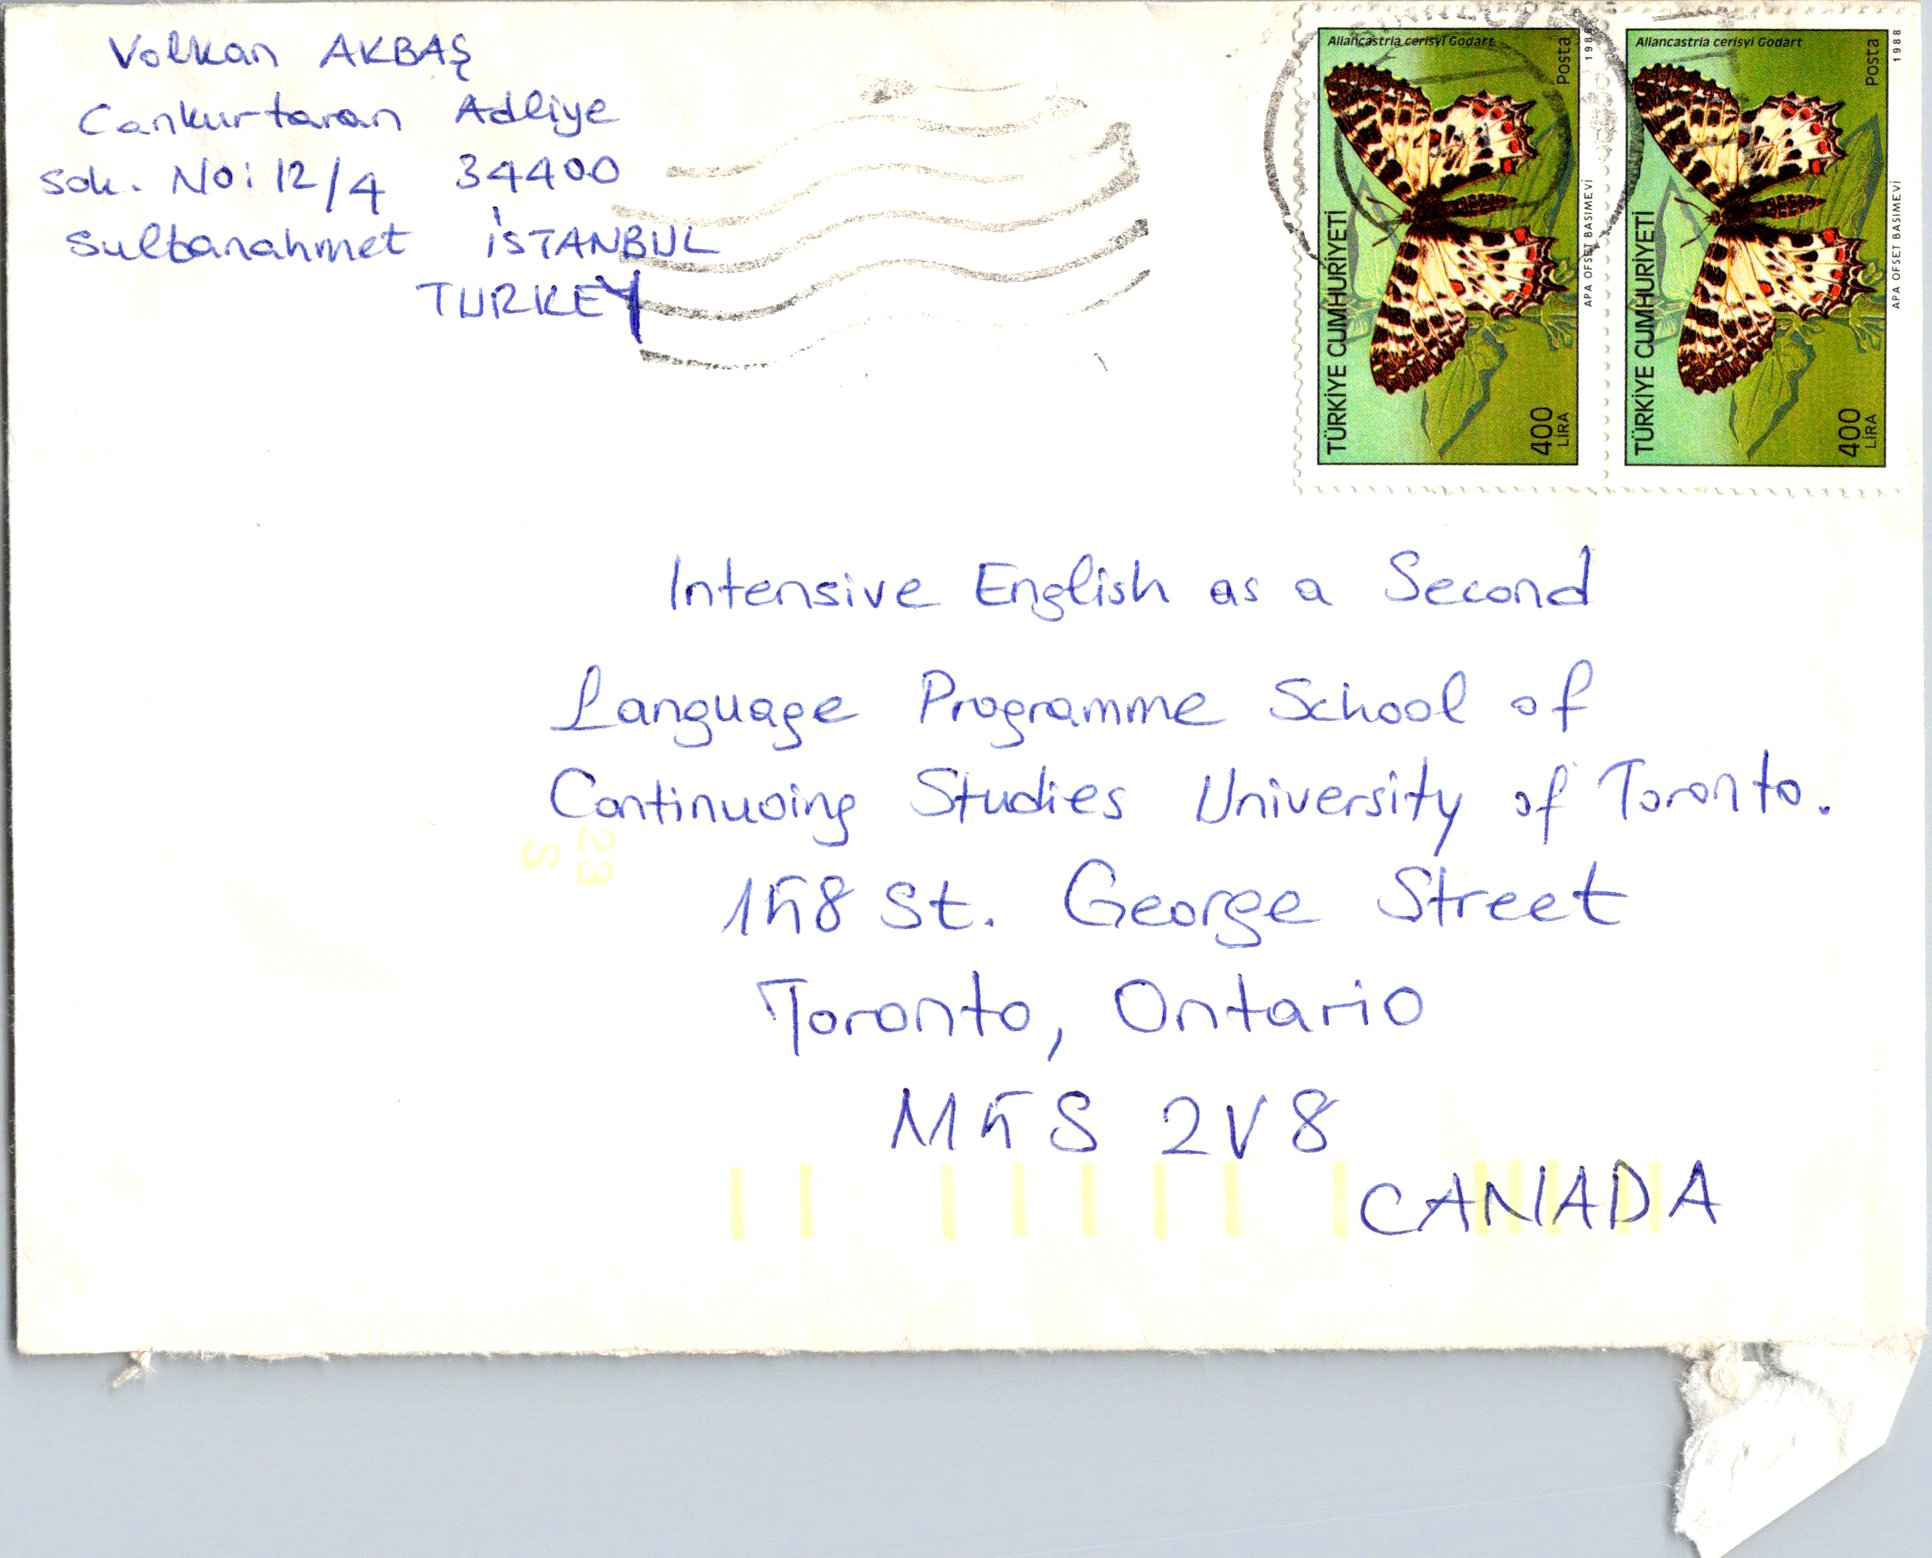 Volkan AKBAŞ
Cankurtaran Adliye
sok. No: 12/4 34400
Sultanahmet İSTANBUL
TURKEY
Allancastria cerisyi Godart
Posta
TÜRKİYE CUMHURİYETİ
400
LİRA
APA OFSET BASIMEVİ
Allancastria cerisyi Godart
Posta
1988
TÜRKİYE CUMHURİYETİ
400
LİRA
APA OFSET BASIMEVİ
Intensive English as a Second
Language Programme School of
Continuoing Studies University of Toronto.
158 St. George Street
Toronto, Ontario
M5S 2V8
CANADA
23
S